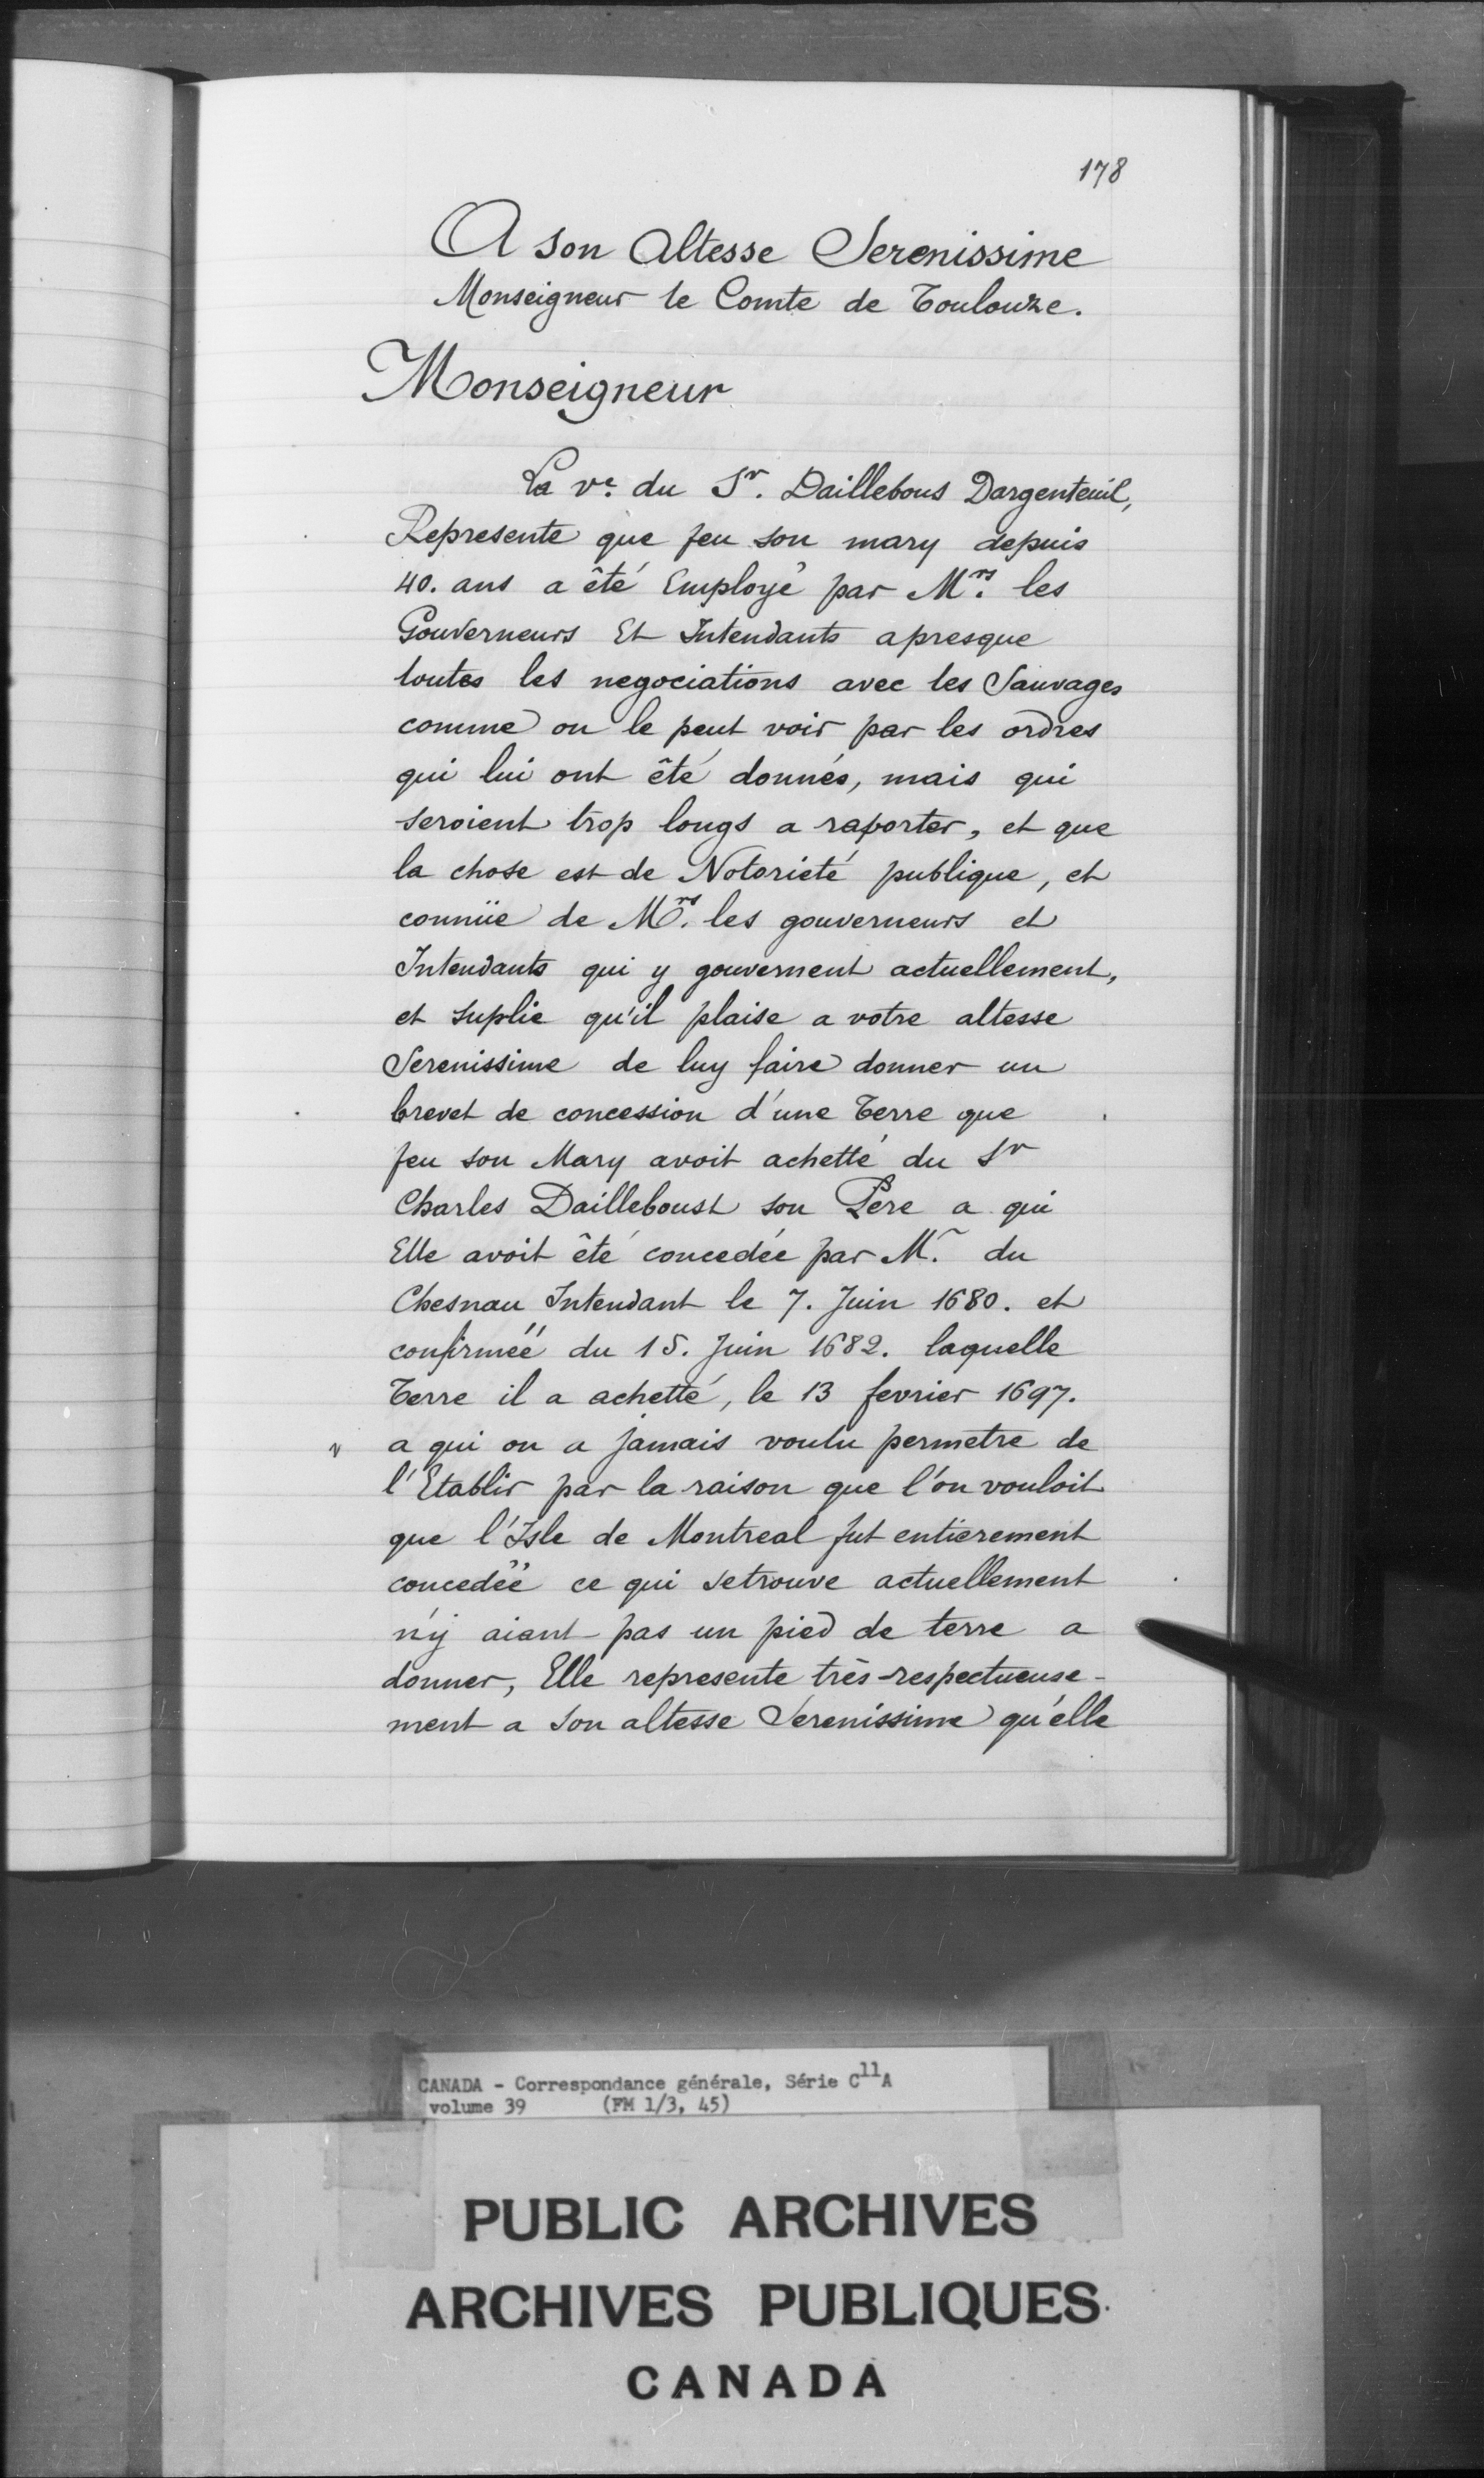 178
A son Altesse Serenissime
Monseigneur le Comte de Toulouze.
Monseigneur
La ve. du Sr. Daillebous Dargenteuil,
Represente que feu son mary depuis
40. ans a êté Employé par Mrs. les
Gouverneurs Et Intendants apresque
toutes les negociations avec les Sauvages
comme on le peut voir par les ordres
qui lui ont êté donnés, mais qui
seroient trop longs a raporter, et que
la chose est de Notorieté publique, et
connüe de Mrs. les gouverneurs et
Intendants qui y gouvernent actuellement,
et suplie qu'il plaise a votre altesse
Serenissime de luy faire donner un
brevet de concession d'une Terre que
feu son Mary avoit achetté du Sr
Charles Dailleboust son Pere a qui
Elle avoit êté concedée par Mr. du
Chesnau Intendant le 7. Juin 1680. et
confirméé du 15. Juin 1682. laquelle
Terre il a achetté, le 13 fevrier 1697.
a qui on a jamais voulu permetre de
l'Etablir par la raison que l'on vouloit
que l'Isle de Montreal fut entierement
concedéé ce qui setrouve actuellement
n'ÿ aiant pas un pied de terre a
donner, Elle represente très-respectueuse-
ment a Son altesse Serenissime qu'elle
CANADA - Correspondance générale, Série C11A
volume 39 (FM 1/3, 45)
PUBLIC ARCHIVES
ARCHIVES PUBLIQUES
CANADA